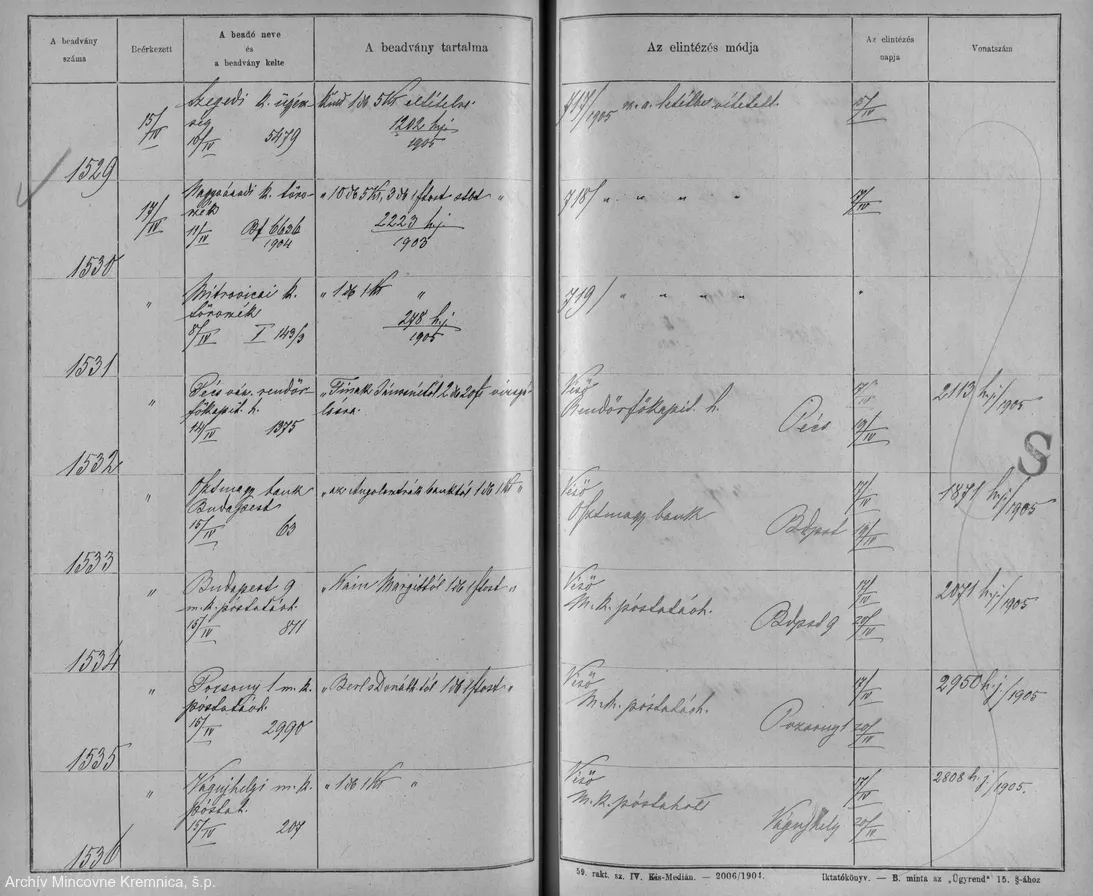 A beadvány száma
Beérkezett
A beadó neve és a beadvány kelte
A beadvány tartalma
Az elintézés módja
Az elintézés napja
Vonatszám
1529
15/IV
Szegedi k. ügyészség
10/IV 5479
Küld 1 db 5 Kr
1202 hj
1905
717/1905
15/IV
1530
17/IV
Nagyváradi k. törvszék
11/IV Bf 6636
1904
„ 10 db 5 Kr, 3 db 1 frtost „
2223 hj
1903
718/ „ „ „ „
17/IV
1531
„
Mitrovicai k. törvszék
8/IV I 143/3
„ 1 db 1 Kr „
248 hj
1905
719/ „ „ „ „
„
1532
„
Pécs vár. rendőrfőkapit. h.
14/IV 1375
Jánosnétól 2 db 20 f
Viső
Rendőrfőkapit. h.
Pécs
17/IV
19/IV
2113 hj/1905
1533
„
Osztmagy bank
Budapest
15/IV 63
„ az Angolosztrák banktól 1 db 1 Kr „
Viső
Osztmagy bank
Bdpest
17/IV
19/IV
1871 hj/1905
1534
„
Budapest 9
m. k. póstatách.
15/IV 811
„ Kain Margittól 1 db 1 frtost „
Viső
M. k. póstatách.
Bdpest 9
17/IV
20/IV
2071 hj/1905
1535
„
Pozsony 1 m. k.
póstatách
15/IV 2990
„ Berls Donáttól 1 db 1 frtost „
Viső
M. k. póstatách.
Pozsony 1
17/IV
20/IV
2950 hj/1905
1536
„
Vágujhelyi m. k.
póstat.
15/IV 207
„ 1 db 1 Kr „
Viső
M. k. póstahiv
Vágujhely
17/IV
20/IV
2808 hj/1905.
S
59. rakt. sz. IV. Kis-Medián. — 2006/1904.
Iktatókönyv. — B. minta az „Ügyrend" 15. §-ához
Archív Mincovne Kremnica, š.p.